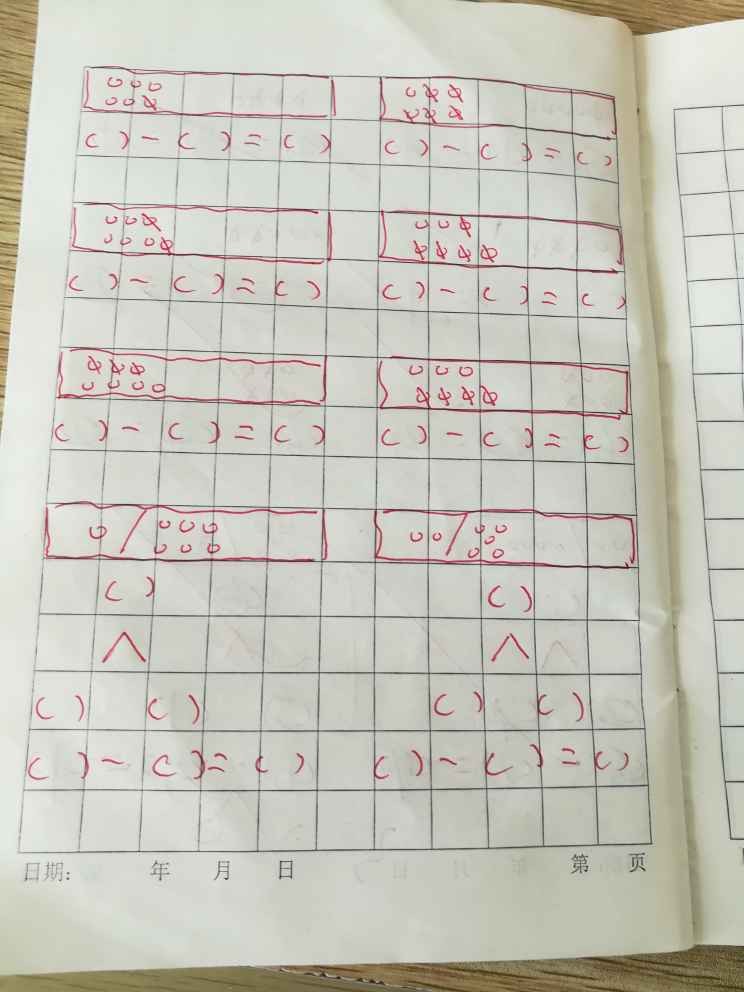 ( ) - ( ) = ( ) ( ) - ( ) = ( )
( ) - ( ) = ( ) ( ) - ( ) = ( )
( ) - ( ) = ( ) ( ) - ( ) = ( )
( ) ( )
( ) ( ) ( ) ( )
( ) - ( ) = ( ) ( ) - ( ) = ( )
日期: 年 月 日 第 页